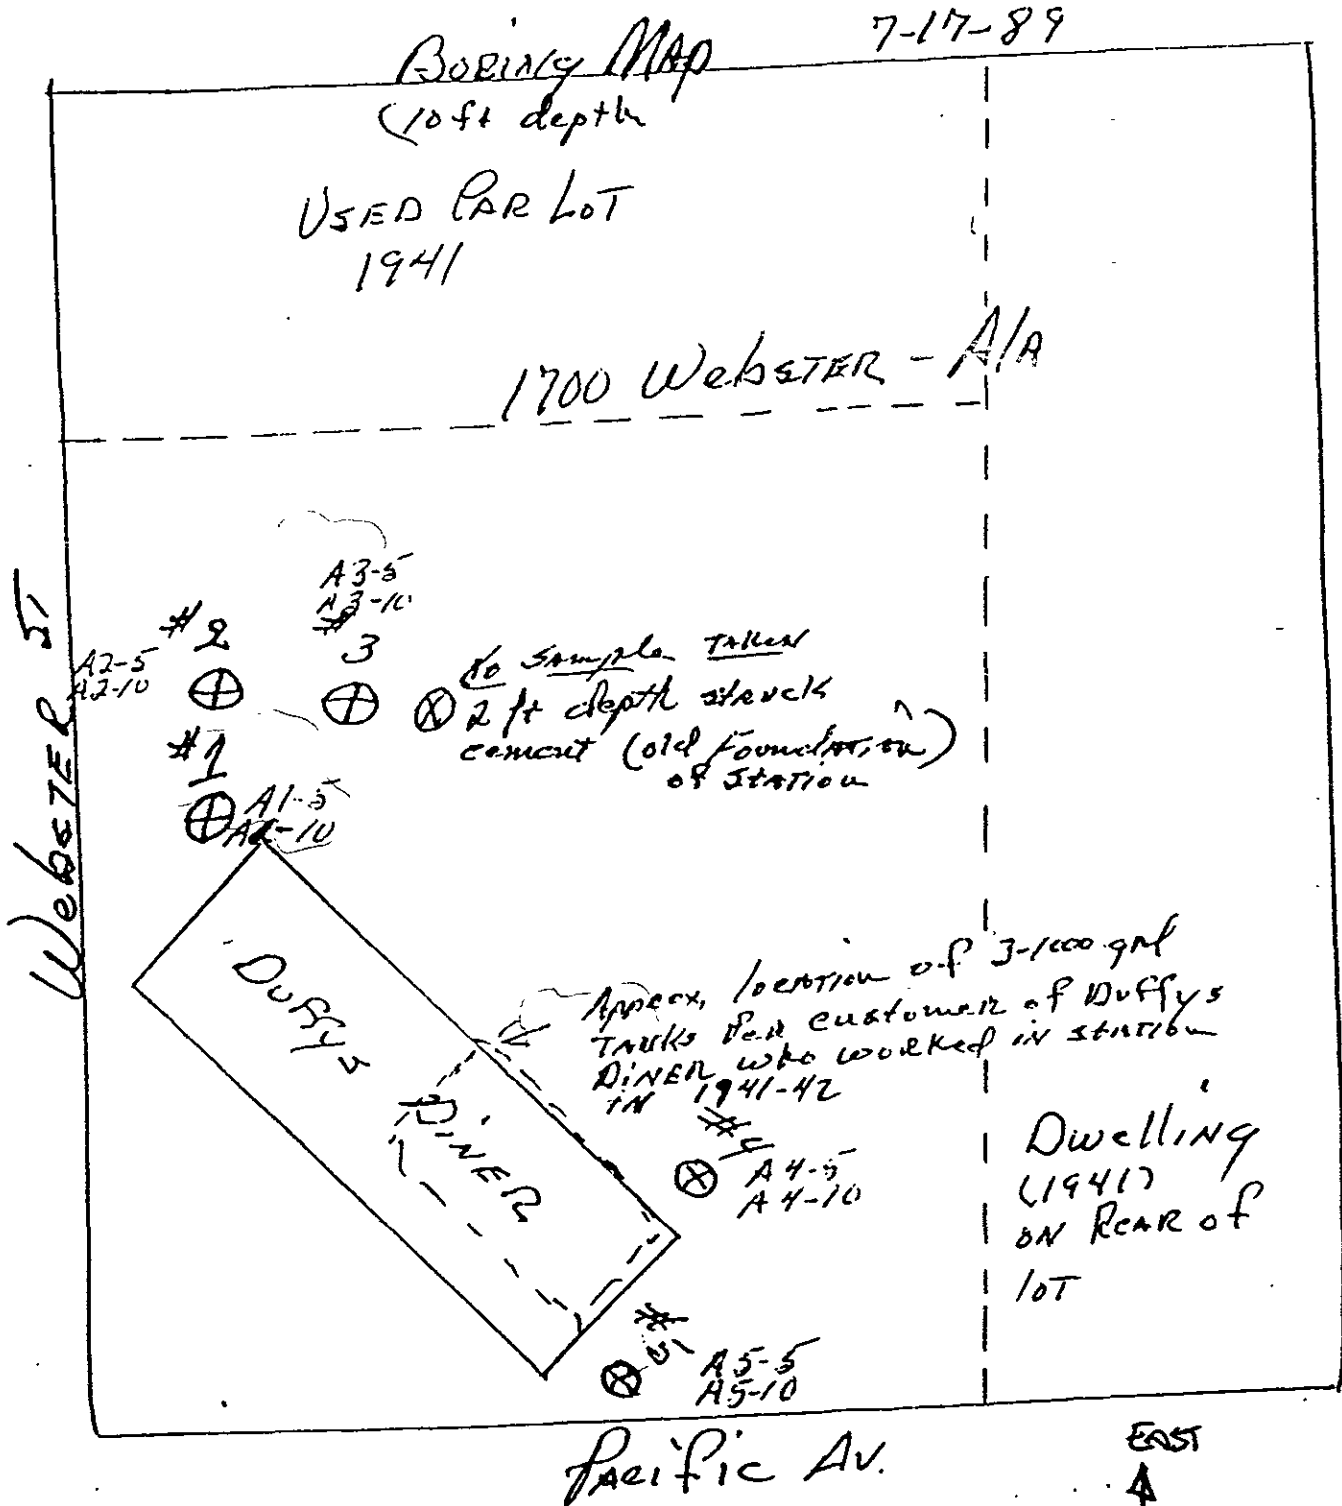 Boring Map
7-17-89
(10 ft depth
Used Car Lot
1941
1700 Webster - A/A
Webster St
A3-5
A3-10
#3
#2
A2-5
A2-10
No Sample Taken
2 ft depth struck
cement (old Foundation)
of Station
#1
A1-5
A1-10
Duffys
Diner
Approx. location of 3-1000 gal
Tanks Per customer of Duffys
Diner who worked in station
in 1941-42
#4
A4-5
A4-10
Dwelling
(1941)
on Rear of
lot
#5
A5-5
A5-10
Pacific Av.
EAST